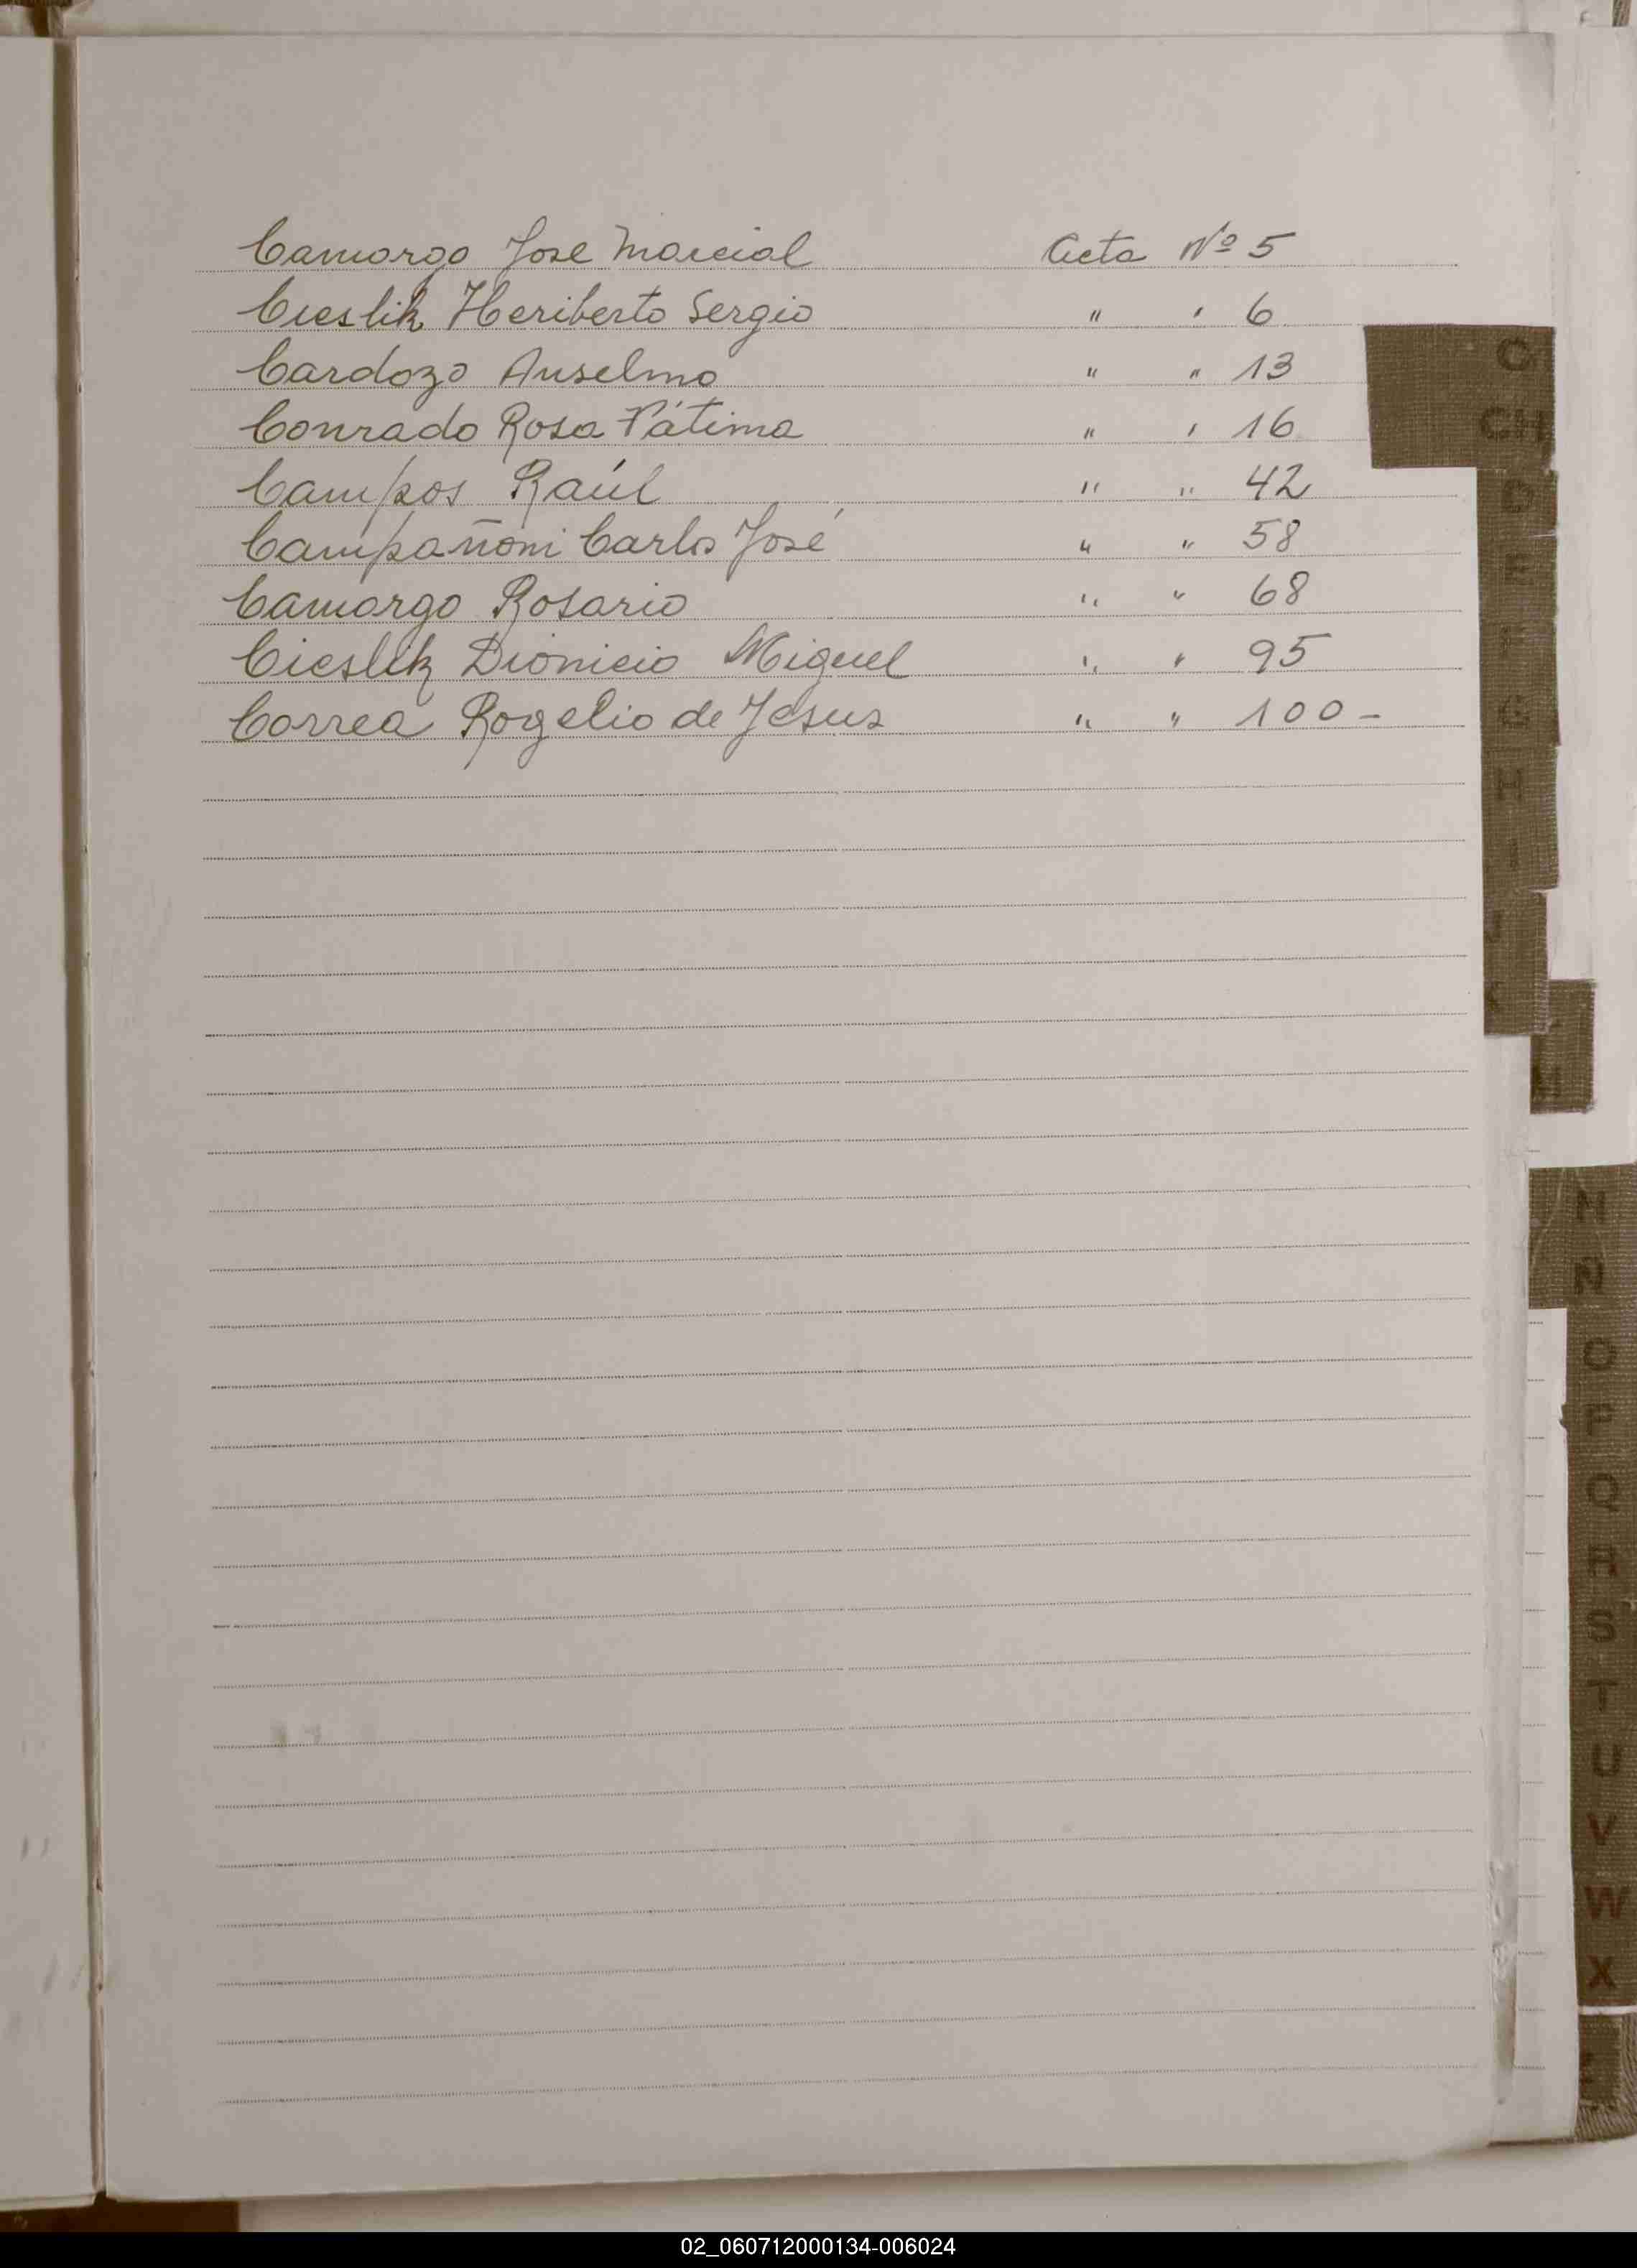 Camargo Jose Marcial Acta Nº 5
Cieslik Heriberto Sergio " " 6
Cardozo Anselmo " " 13
Conrado Rosa Fátima " " 16
Campos Raúl " " 42
Campañoni Carlos José " " 58
Camargo Rosario " " 68
Cieslik Dionicio Miguel " " 95
Correa Rogelio de Jesus " " 100-
C
CH
D
E
F
G
H
I
J
K
M
N
Ñ
O
P
Q
R
S
T
U
V
W
X
02_060712000134-006024